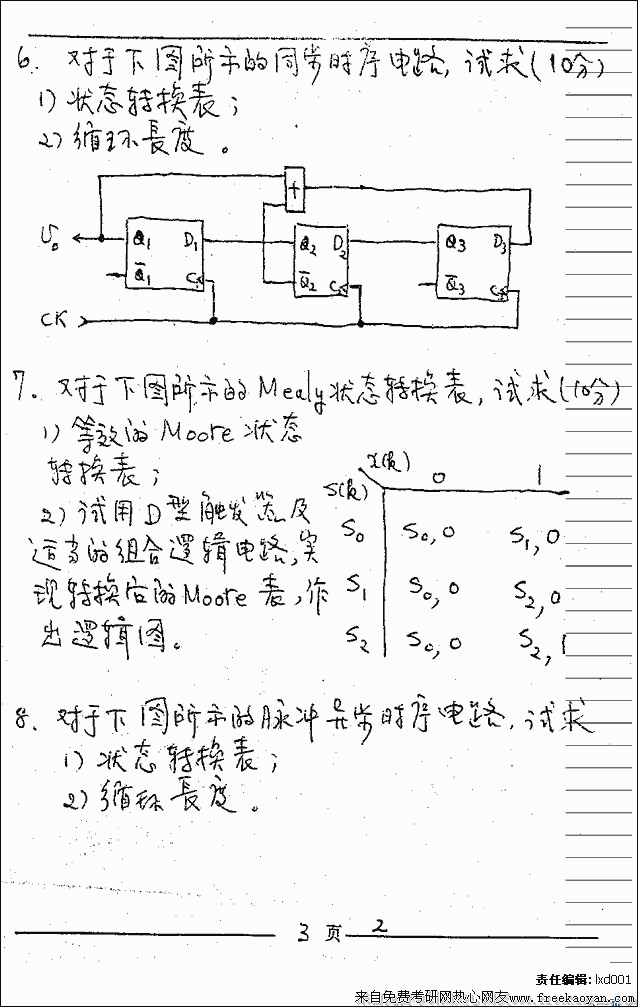 6. 对于下图所示的同步时序电路, 试求(10分)
1) 状态转换表;
2) 循环长度。
+
U₀ Q₁ D₁ Q₂ D₂ Q₃ D₃
Q̅₁ C Q̅₂ C Q̅₃ C
CK
7. 对于下图所示的Mealy状态转换表, 试求(10分)
1) 等效的Moore状态
转换表;
2) 试用D型触发器及
适当的组合逻辑电路, 实
现转换后的Moore表, 作
出逻辑图。
x(k) 0 1
S(k)
S₀ S₀, 0 S₁, 0
S₁ S₀, 0 S₂, 0
S₂ S₀, 0 S₂, 1
8. 对于下图所示的脉冲异步时序电路, 试求
1) 状态转换表;
2) 循环長度。
3 页 2
责任编辑: lxd001
来自免费考研网热心网友www.freekaoyan.com